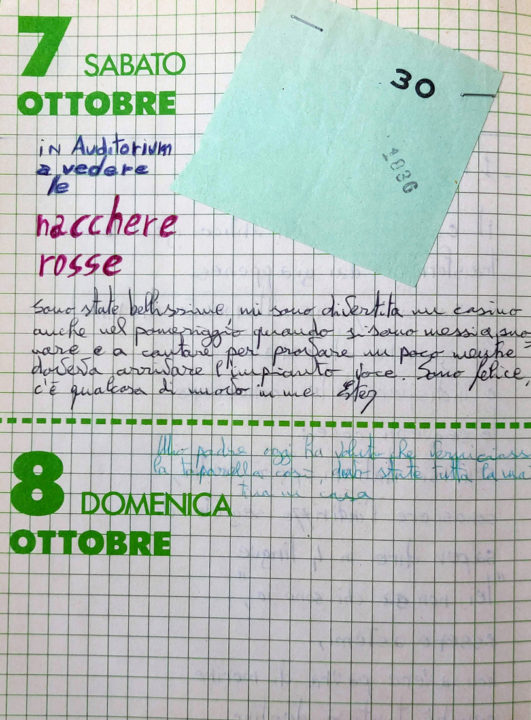 7
SABATO
OTTOBRE
30
1030
in Auditorium
a vedere
le
nacchere
rosse
Sono state bellissime, mi sono divertita un casino
anche nel pomeriggio quando si sono messi a suo
nare e a cantare per provare un poco mentre
doveva arrivare l'impianto voce. Sono felice,
c'è qualcosa di nuovo in me.
8
DOMENICA
OTTOBRE
Mio padre oggi ha voluto che verniciassi
la tapparella così, sono stata tutta la mat
tina in casa